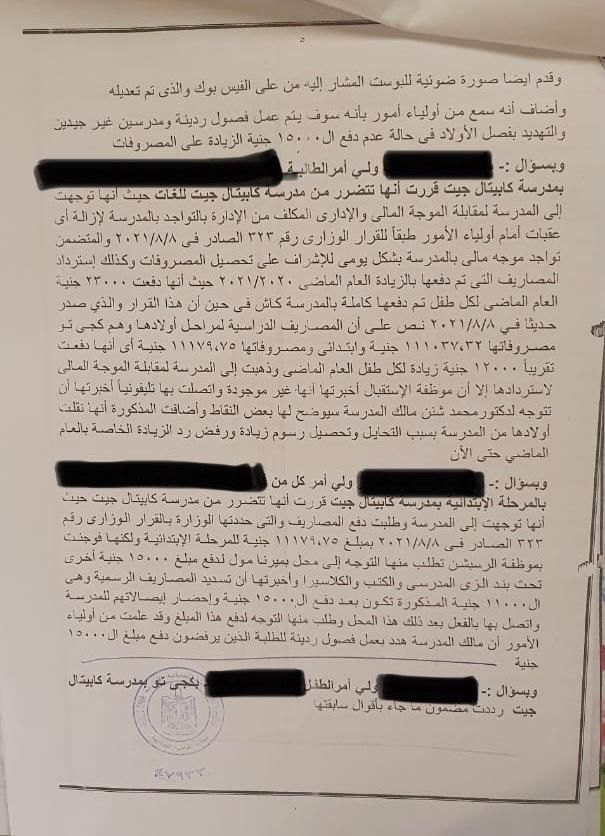 ٥
وقدم ايضا صورة ضوئية للبوست المشار إليه من على الفيس بوك والذى تم تعديله
وأضاف أنه سمع من أولياء أمور بأنه سوف يتم عمل فصول رديئة ومدرسين غير جيدين
والتهديد بفصل الأولاد فى حالة عدم دفع ال١٥٠٠٠ جنية الزيادة على المصروفات
وبسؤال :- ولي أمر الطالبة
بمدرسة كابيتال جيت قررت أنها تتضرر من مدرسة كابيتال جيت للغات حيث أنها توجهت
إلى المدرسة لمقابلة الموجة المالى والإدارى المكلف من الإدارة بالتواجد بالمدرسة لإزالة أى
عقبات أمام أولياء الأمور طبقاً للقرار الوزارى رقم ٣٢٣ الصادر فى ٢٠٢١/٨/٨ والمتضمن
تواجد موجه مالى بالمدرسة بشكل يومى للإشراف على تحصيل المصروفات وكذلك إسترداد
المصاريف التى تم دفعها بالزيادة العام الماضى ٢٠٢١/٢٠٢٠ حيث أنها دفعت ٢٣٠٠٠ جنية
العام الماضى لكل طفل تم دفعها كاملة بالمدرسة كاش فى حين أن هذا القرار والذي صدر
حديثاً فى ٢٠٢١/٨/٨ نص على أن المصاريف الدراسية لمراحل أولادها وهم كجى تو
مصروفاتها ١١١٠٣٧,٣٢ جنية وابتدائى ومصروفاتها ١١١٧٩,٧٥ جنية أى أنها دفعت
تقريباً ١٢٠٠٠ جنية زيادة لكل طفل العام الماضى وذهبت إلى المدرسة لمقابلة الموجة المالى
لاستردادها إلا أن موظفة الإستقبال أخبرتها أنها غير موجودة واتصلت بها تليفونياً أخبرتها أن
تتوجه لدكتور محمد شتن مالك المدرسة سيوضح لها بعض النقاط وأضافت المذكورة أنها نقلت
أولادها من المدرسة بسبب التحايل وتحصيل رسوم زيادة ورفض رد الزيادة الخاصة بالعام
الماضي حتى الأن
وبسؤال :- ولي أمر كل من
بالمرحلة الإبتدائية بمدرسة كابيتال جيت قررت أنها تتضرر من مدرسة كابيتال جيت حيث
أنها توجهت إلى المدرسة وطلبت دفع المصاريف والتى حددتها الوزارة بالقرار الوزارى رقم
٣٢٣ الصادر فى ٢٠٢١/٨/٨ بمبلغ ١١١٧٩,٧٥ جنية للمرحلة الإبتدائية ولكنها فوجئت
بموظفة الرسبشن تطلب منها التوجه إلى محل بميرنا مول لدفع مبلغ ١٥٠٠٠ جنية أخرى
تحت بند الزى المدرسى والكتب والكلاسيرا وأخبرتها أن تسديد المصاريف الرسمية وهى
ال١١٠٠٠ جنية المذكورة تكون بعد دفع ال١٥٠٠٠ جنية وإحضار إيصالاتهم للمدرسة
واتصل بها بالفعل بعد ذلك هذا المحل وطلب منها التوجه لدفع هذا المبلغ وقد علمت من أولياء
الأمور أن مالك المدرسة هدد بعمل فصول رديئة للطلبة الذين يرفضون دفع مبلغ ال١٥٠٠٠
جنية
وبسؤال :- ولي أمر الطفل بكجى تو بمدرسة كابيتال
جيت رددت مضمون ما جاء بأقوال سابقتها